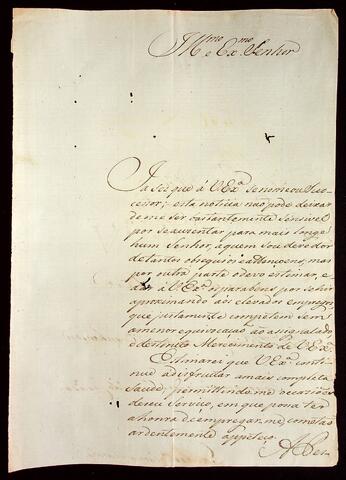 Ill.mo e Ex.mo Senhor
Já sei que á V Ex.a se nomeou suc-
cessor; esta noticia não pode deixar
de me ser bastantemente sensivel
por se auzentar para mais longe
hum Senhor, aquem sou devedor
de tantos obsequios e attençoens, mas
por outra parte o devo estimar, e
dar á V Ex.a os parabens por se hir
aproximando aos elevados empregos
que justamente competem sem
a menor equivocação ao assignalado,
e destincto Merecimento de V Ex.a
Estimarei que V Ex.a conti-
nue adisfructar a mais completa
saude, permittindo-me occazioens
de seu Serviço, em que possa ter
a honra de empregar-me, como tão
ardentemente appeteço.